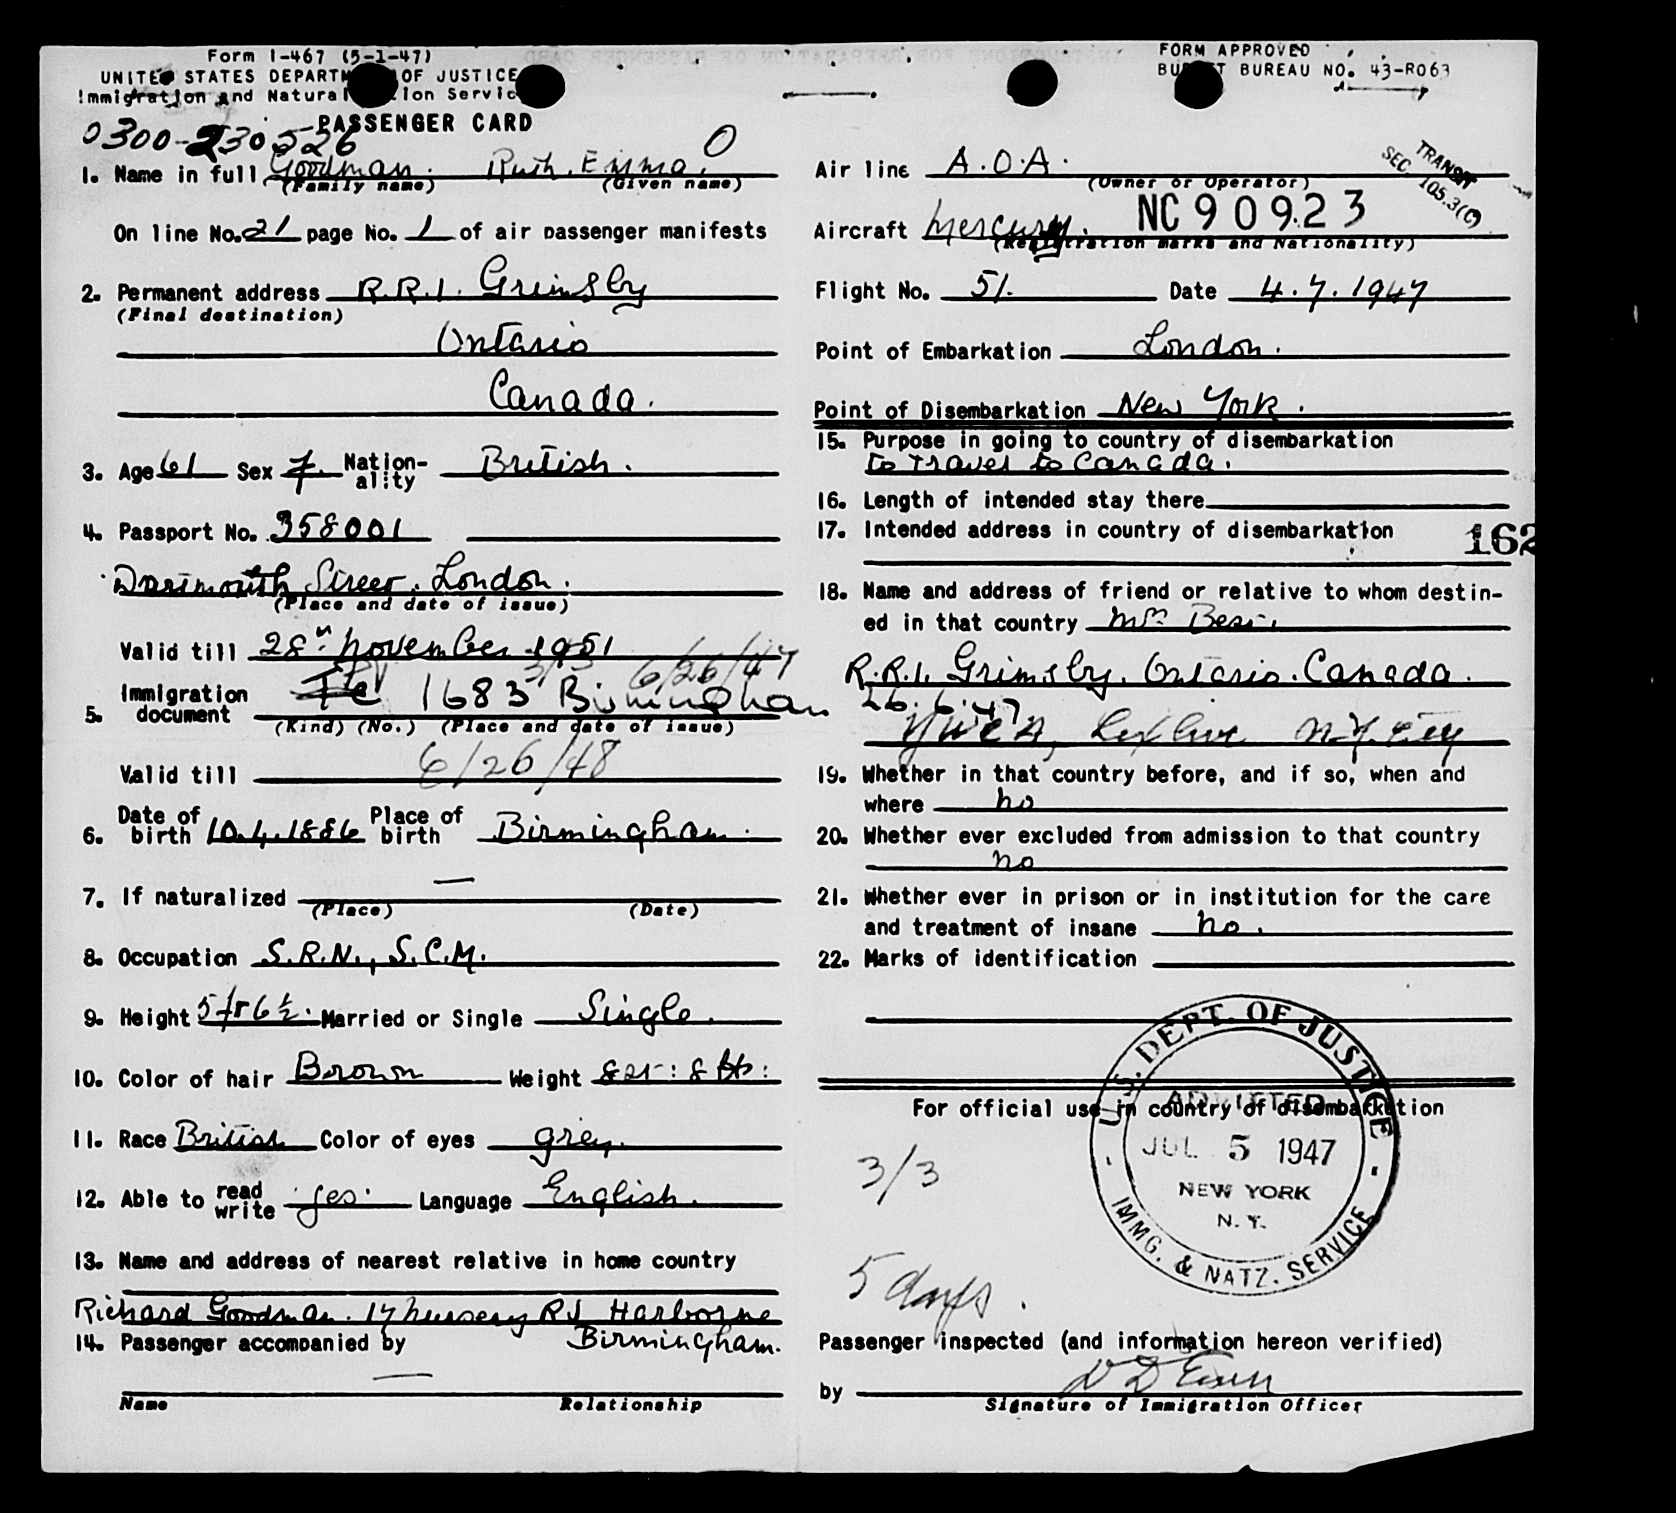 Form I-467 (5-1-47)
UNITED STATES DEPARTM OF JUSTICE
Immigration and Natural ion Servic
PASSENGER CARD
0300-230526
O
1. Name in full Goodman. Ruth. Emma.
(Family name) (Given name)
On line No. 21 page No. 1 of air passenger manifests
2. Permanent address R.R.1. Grimsby
(Final destination)
Ontario
Canada.
3. Age 61 Sex f. Nation-ality British.
4. Passport No. 358001
Dartmouth Street. London.
(Place and date of issue)
Valid till 28th November 1951
3/3 6/26/47
5. Immigration document 1683 Birmingham 26.6.47
(Kind) (No.) (Place and date of issue)
Valid till 6/26/48
6. Date of birth 10.4.1886 Place of birth Birmingham.
7. If naturalized —
(Place) (Date)
8. Occupation S.R.N., S.C.M.
9. Height 5ft 6½. Married or Single Single.
10. Color of hair Brown Weight 8st: 8 lb:
11. Race British Color of eyes grey.
12. Able to read write yes. Language English.
13. Name and address of nearest relative in home country
Richard Goodman. 17 Nursery Rd Harborne
Birmingham.
14. Passenger accompanied by
—
Name Relationship
FORM APPROVED
BU T BUREAU NO. 43-R063
TRANSIT
SEC. 105.3(C)
Air line A.O.A.
(Owner or Operator)
Aircraft Mercury. NC90923
(Registration marks and Nationality)
Flight No. 51. Date 4.7.1947
Point of Embarkation London.
Point of Disembarkation New York.
15. Purpose in going to country of disembarkation
to travel to Canada.
16. Length of intended stay there
17. Intended address in country of disembarkation
162
18. Name and address of friend or relative to whom destin-
ed in that country Mrs Best.
R.R.1. Grimsby. Ontario. Canada.
YWCA, Lex Ave N.Y. City
19. Whether in that country before, and if so, when and
where no
20. Whether ever excluded from admission to that country
no
21. Whether ever in prison or in institution for the care
and treatment of insane no.
22. Marks of identification
For official use in country of disembarkation
U.S. DEPT. OF JUSTICE
ADMITTED
JUL 5 1947
NEW YORK
N.Y.
IMMG. & NATZ. SERVICE
3/3
5 days.
Passenger inspected (and information hereon verified)
by
Signature of Immigration Officer